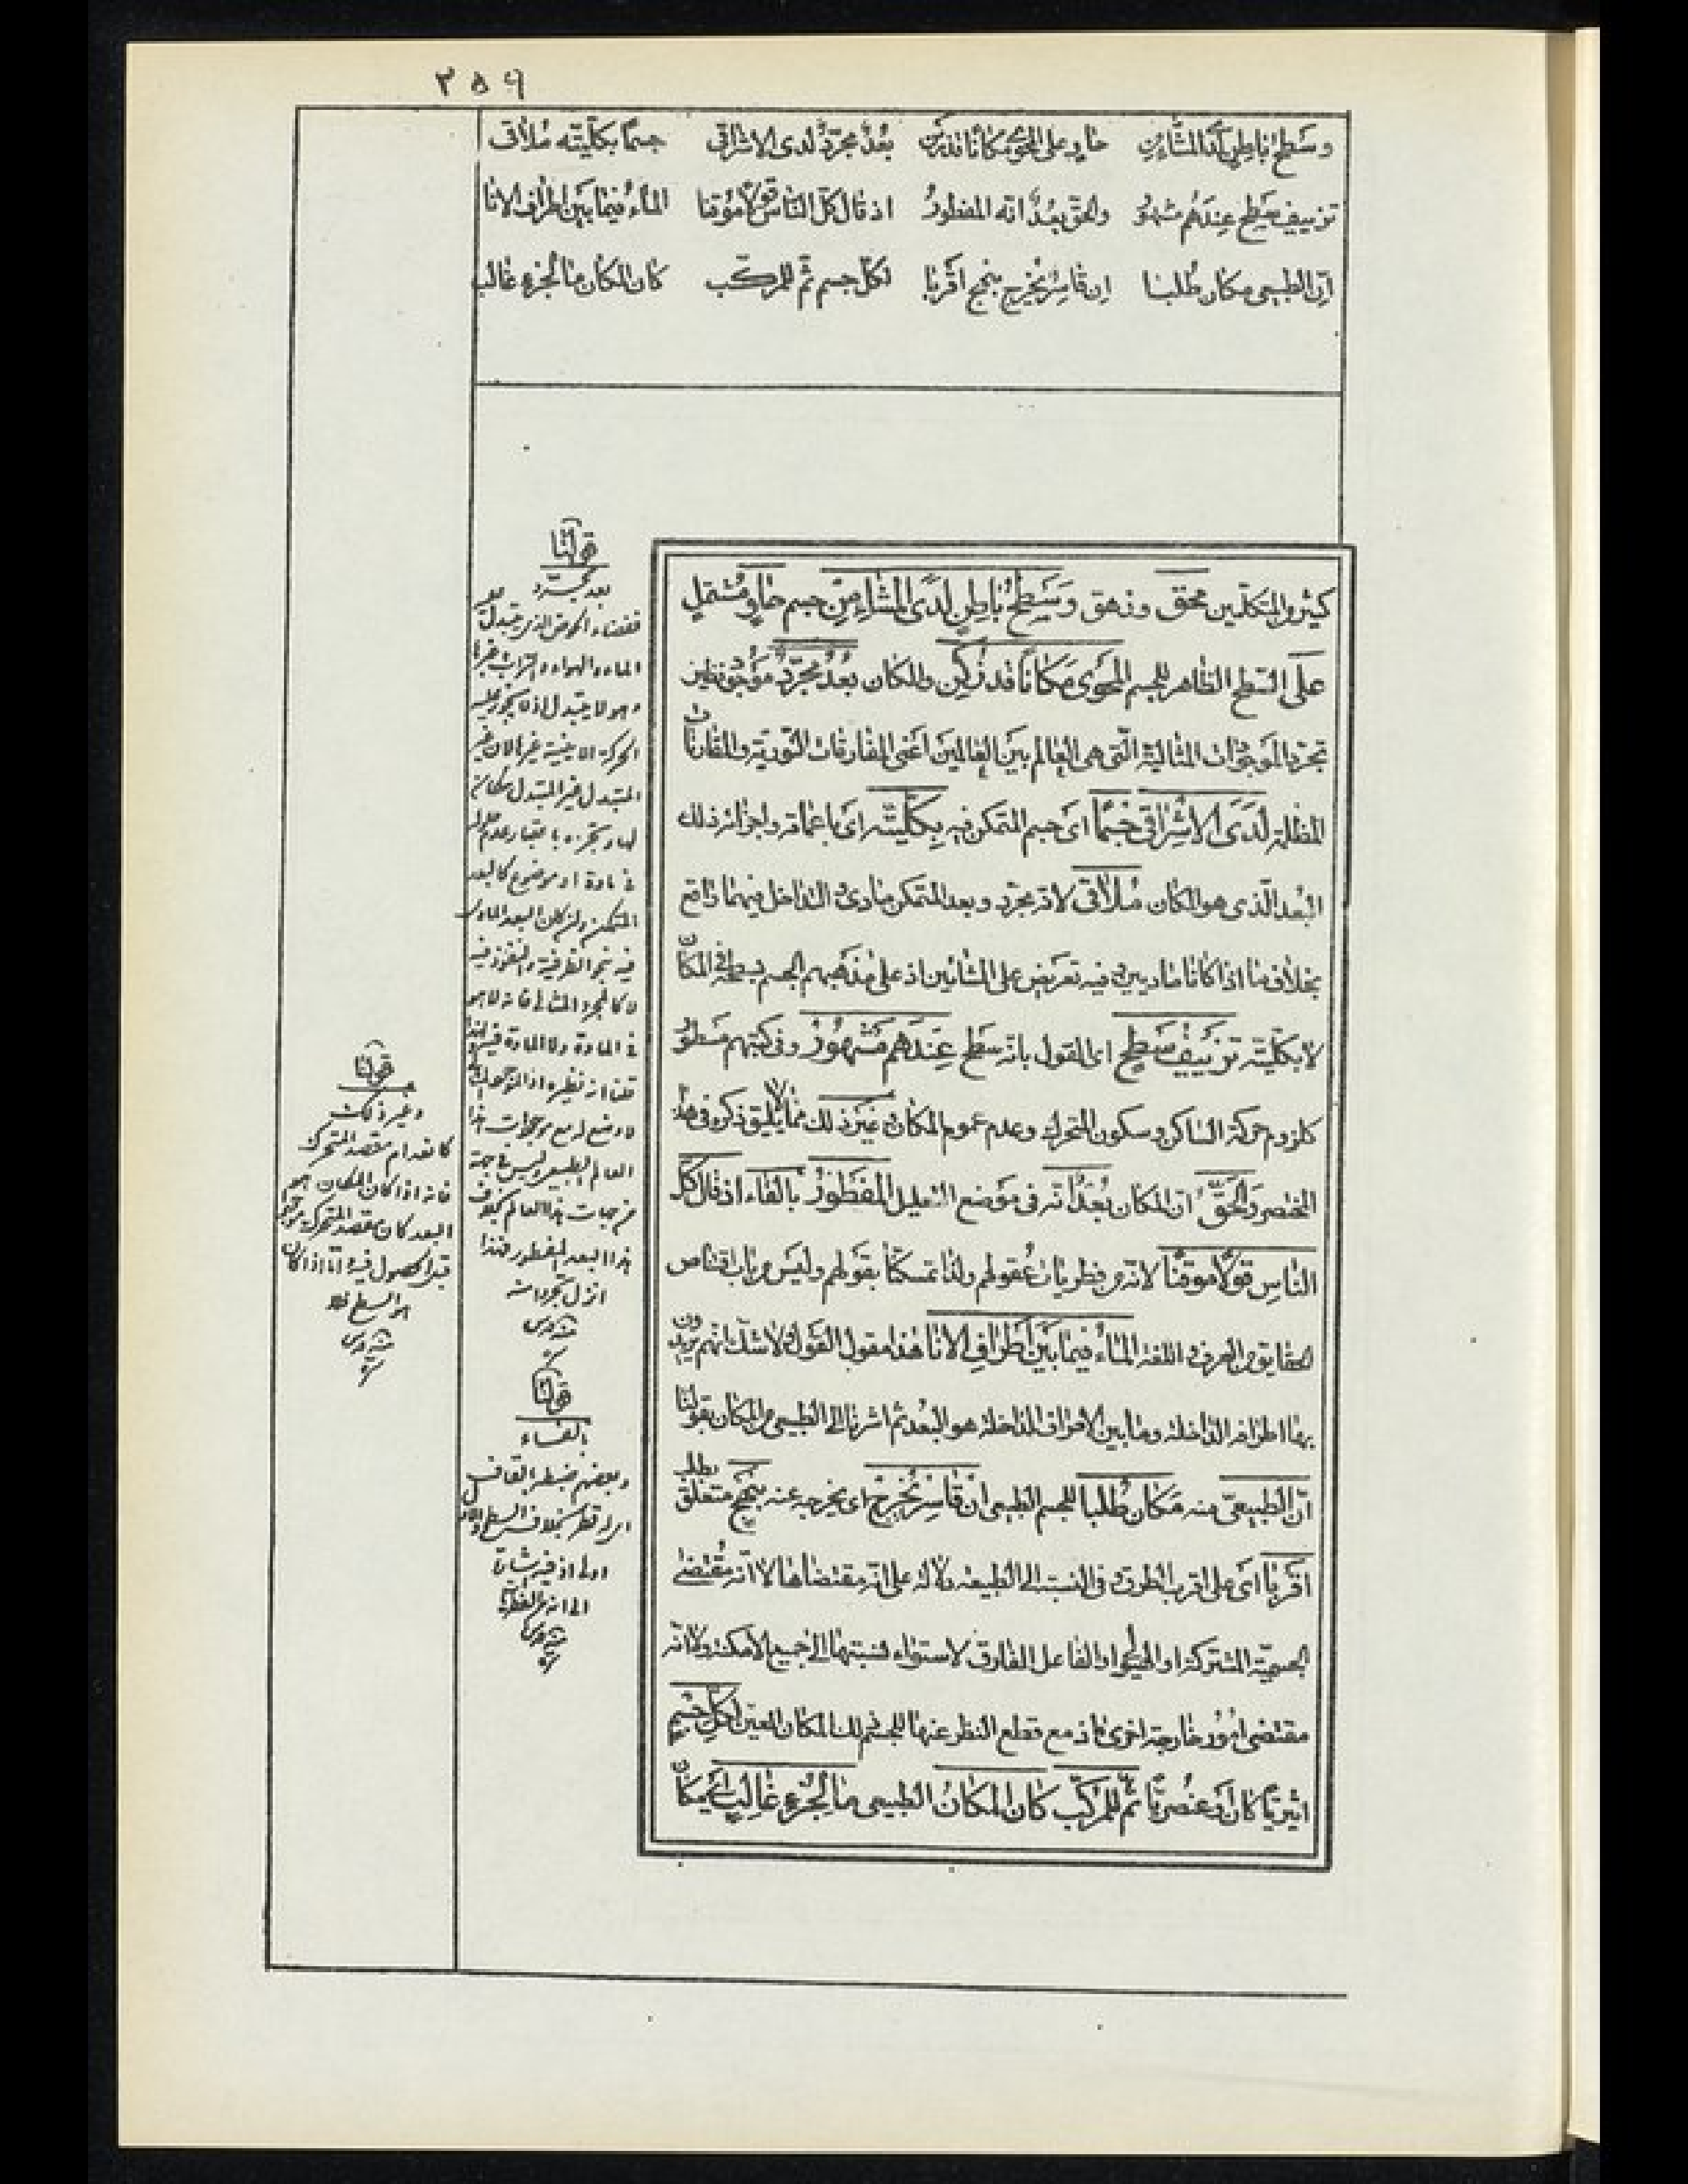 ٢٥٩
وسَطحُ باطنٍ لَدَى المشّائين حاوٍ على المحوىّ مكاناً قد زكن بُعدٌ مجرّدٌ لدى الاشراقى جسماً بكلّيّته مُلاقى
تزييف سَطحٍ عندَهم مشهورُ والحقّ بُعدٌ انّه المفطورُ اذ قال كلّ الناس قولاً موقنا الماءُ فيما بين اطراف الانا
انّ الطبيعى مكان طُلبا ان قاسر يُخرج بنهج اقربا لكلّ جسم ثمّ للمركّب كان المكان ما لجزءٍ غالب
كثير والمتكلّمين محقق وزهق وسَطحُ باطنٍ لدَى المشّاء مِن جسم حاوٍ مُشتمل
عَلَى السّطح الظاهر للجسم المحوى مكاناً قد زُكن والمكان بُعدٌ مجرّدٌ موجود نظير
تجرّد الموجودات المثالية الّتى هى العالم بين العالمين اعنى المفارقات النّورية والمقارنات
المظلمة لدَى الاشراقى جسماً اى جسم المتمكن فيه بكلّيّته اى باعماقه واجزائه ذلك
البُعد الّذى هو المكان مُلاقى لانّه مجرّد وبعد المتمكن مادى والتداخل فيهما واقع
بخلاف ما اذا كانا ماديين وفيه تعريض على المشائين اذ على مذهبهم الجسم بسطحه فى المكان
لا بكلّيّته تزييفُ سَطحٍ اى القول بانّه سطح عندهم مشهورُ وفى كتبهم مسطور
كلزوم حركة الساكن وسكون المتحرك وعدم عموم المكان وغير ذلك ممّا لا يليق ذكره فى هذا
المختصر والحقّ انّ المكان بُعدٌ انّه فى موضع التعليل المفطورُ بالفاء اذ قال كلّ
الناسِ قولاً موقنا لانّه من فطريات عُقولهم ولذا تمسكنا بقولهم وليس من باب اقتناص
الحقايق من العرف واللغة الماءُ فيما بين اطرافِ الانا هذا مقول القول ولا شك انهم يريدون
بها اطرافه الداخلة وما بين الاطراف الداخلة هو البُعد ثم اشرنا الى الطبيعى من المكان بقولنا
انّ الطبيعىّ منه مكان طُلبا للجسم الطبيعى ان قاسر يُخرج اى يخرجه عنه بنهج متعلق بطلب
اقربا اى على اقرب الطرق وفى النسبة الى الطبيعة دلالة على انّه مقتضاها لا انّه مُقتضى
الجسميّة المشتركة او الهيولى او الفاعل المفارق لاستواء نسبتها الى جميع الامكنة ولا انّه
مقتضى امور خارجة اخرى فانّ مع قطع النظر عنها للجسم ذلك المكان المعين لكلّ جسمٍ
اثيريّاً كان او عنصريّاً ثمّ للمركّب كان المكانُ الطبيعى ما لجُزءٍ غالبٍ اى مكان
قولنا
بعد مجرّد
ففضاء الحوض الذى يتبدل فيه
الماء والهواء والتراب وغيرها
وهو لا يتبدل اذ لا يجوز عليه
الحركة الاينية غير الان غير
المتبدل غير المتبدل مكان
لها وتجرده باعتبار عدم حلوله
فى مادة او موضوع كالبعد
المتمكن وان كان البعد المادى
فيه بنحو الظرفية والنفوذ فيه
لا كالمجرد المثالى فانه لا هو
فى المادة ولا المادة فيه
قلنا انه نظيره اذ الموجود المثالى
لا وضع له مع موجودات هذا
العالم الطبيعى وليس فى جهة
من جهات هذا العالم بخلاف
هذا البعد المفطور فهذا
انزل تجردا منه
منه
قولنا
بالفاء
وبعضهم ضبطه بالقاف
اى له قطر بخلاف السطح والاول
اولى اذ فيه اشارة
الى انه من الفطريات
منه
قولنا
وغير ذلك
كانعدام مقصد المتحرك
فانه اذا كان المكان هو
البعد كان مقصد المتحرك موجودا
قبل الحصول فيه واما اذا كان
هو السطح فلا
منه